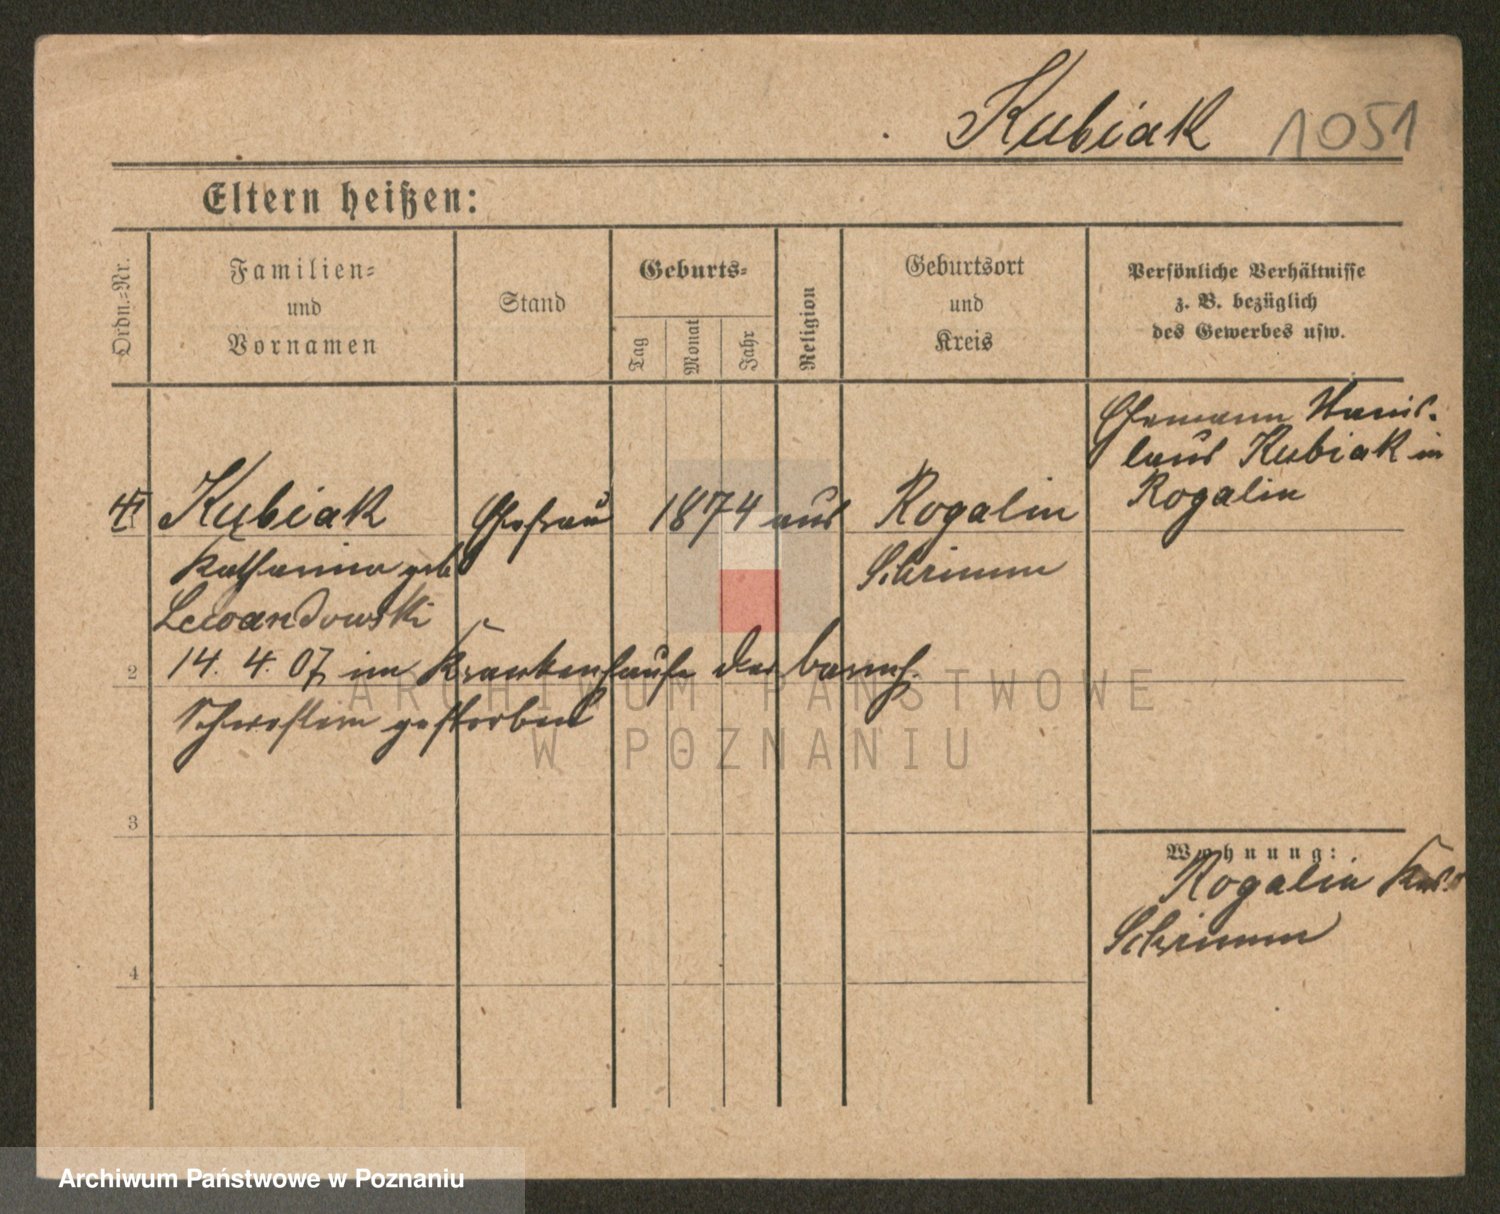 Kubiak 1051
Eltern heißen:
Ordn.-Nr.
Familien-
und
Vornamen
Stand
Geburts-
Tag
Monat
Jahr
Religion
Geburtsort
und
Kreis
Persönliche Verhältnisse
z. B. bezüglich
des Gewerbes usw.
Ehemann Stanis-
laus Kubiak in
Rogalin
Kubiak Ehefrau 1874 aus Rogalin
Katharina geb.
Schrimm
Lewandowski
2 14. 4. 07 im Krankenhause der barmh.
Schwestern gestorben
ARCHIWUM PAŃSTWOWE
W POZNANIU
3
Wohnung:
Rogalin Krs.
Schrimm
4
Archiwum Państwowe w Poznaniu